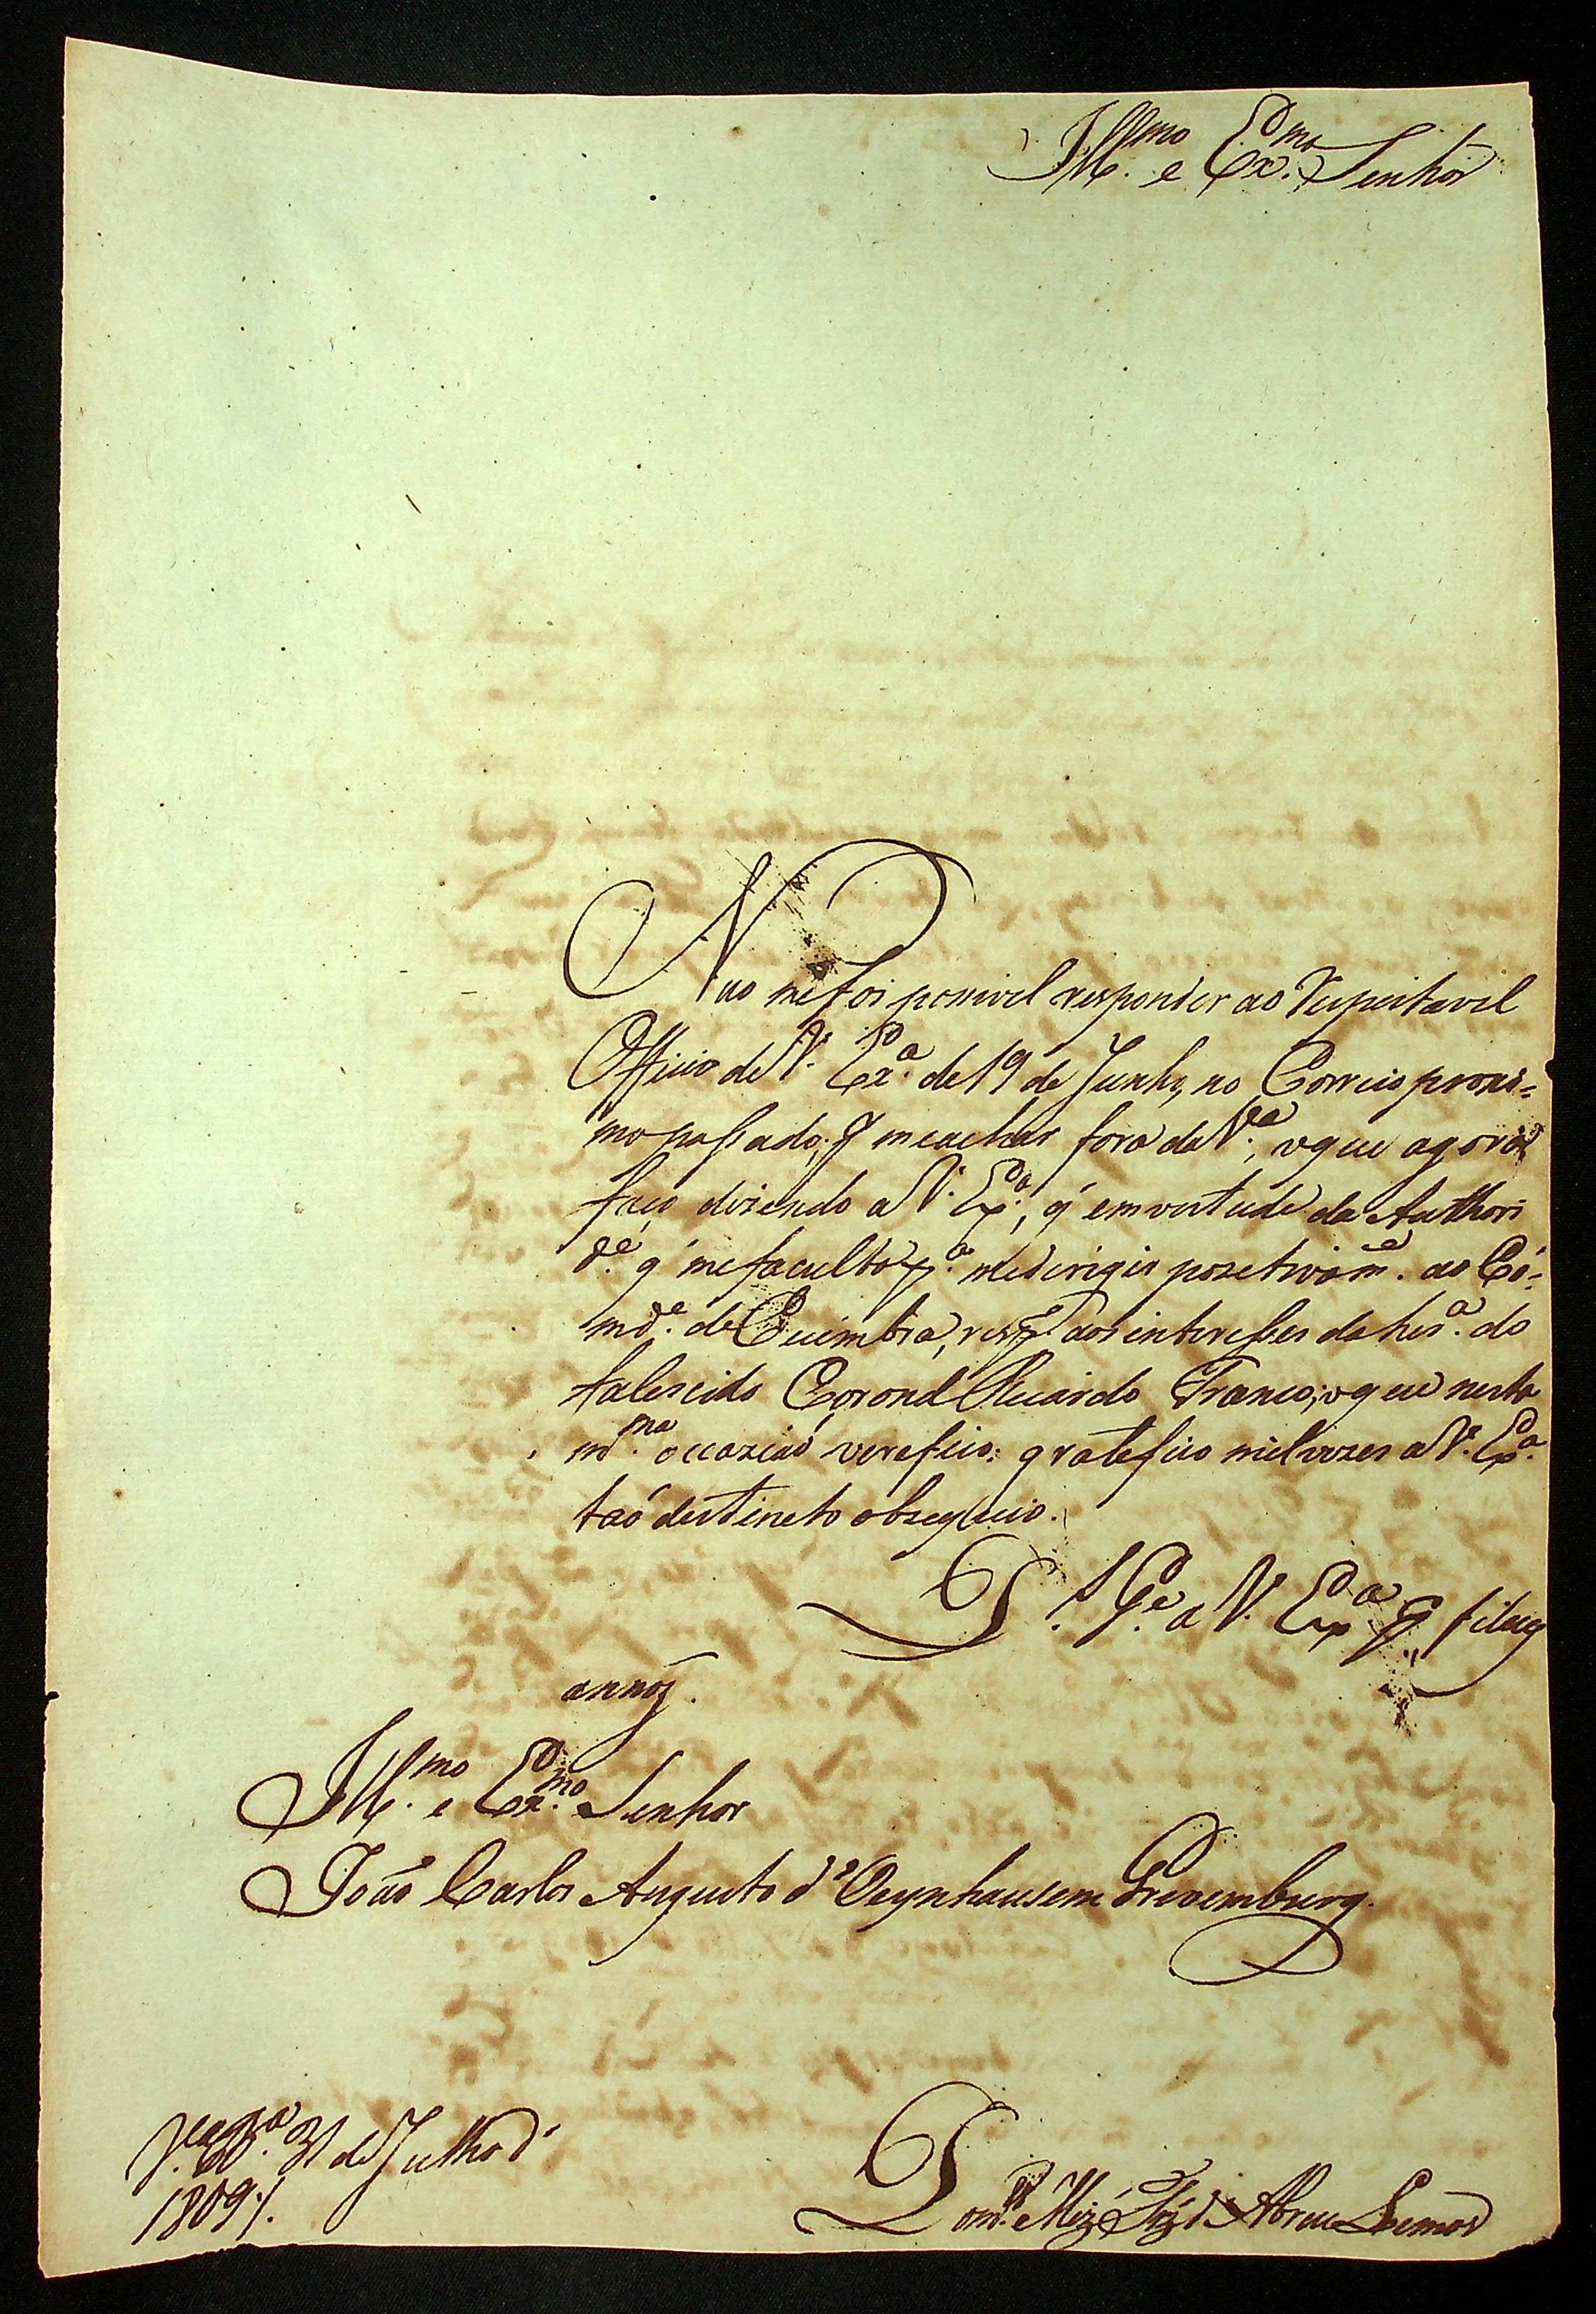 Ill.mo e Ex.mo Senhor
Não me foi possivel responder ao Respeitavel
Officio de V. Ex.a de 19 de Junho, no Correio proxi=
mo passado, p.r me achar fora da V.a, o que agora
faço, dizendo a V. Ex.a, q' em vertude da Authori
d.e q' me facultou p.a me dirigir pozetivam.e ao Có=
md.e de Cuimbra, resp.to aos interesses da her.a do
falescido Coronel Ricardo Franco; o que nesta
m.ma occazião verefico: gratefico mil vezes a V. Ex.a
taó destincto obsequio.
D.s G.e a V. Ex.a p.r filices
annos.
Ill.mo e Ex.mo Senhor
Joaõ Carlos Augusto d'Oeynhausem Grevemburg.
V.a B.a 31 de Julho d'
1809
Dom.os Joze d'Abreu Lemos